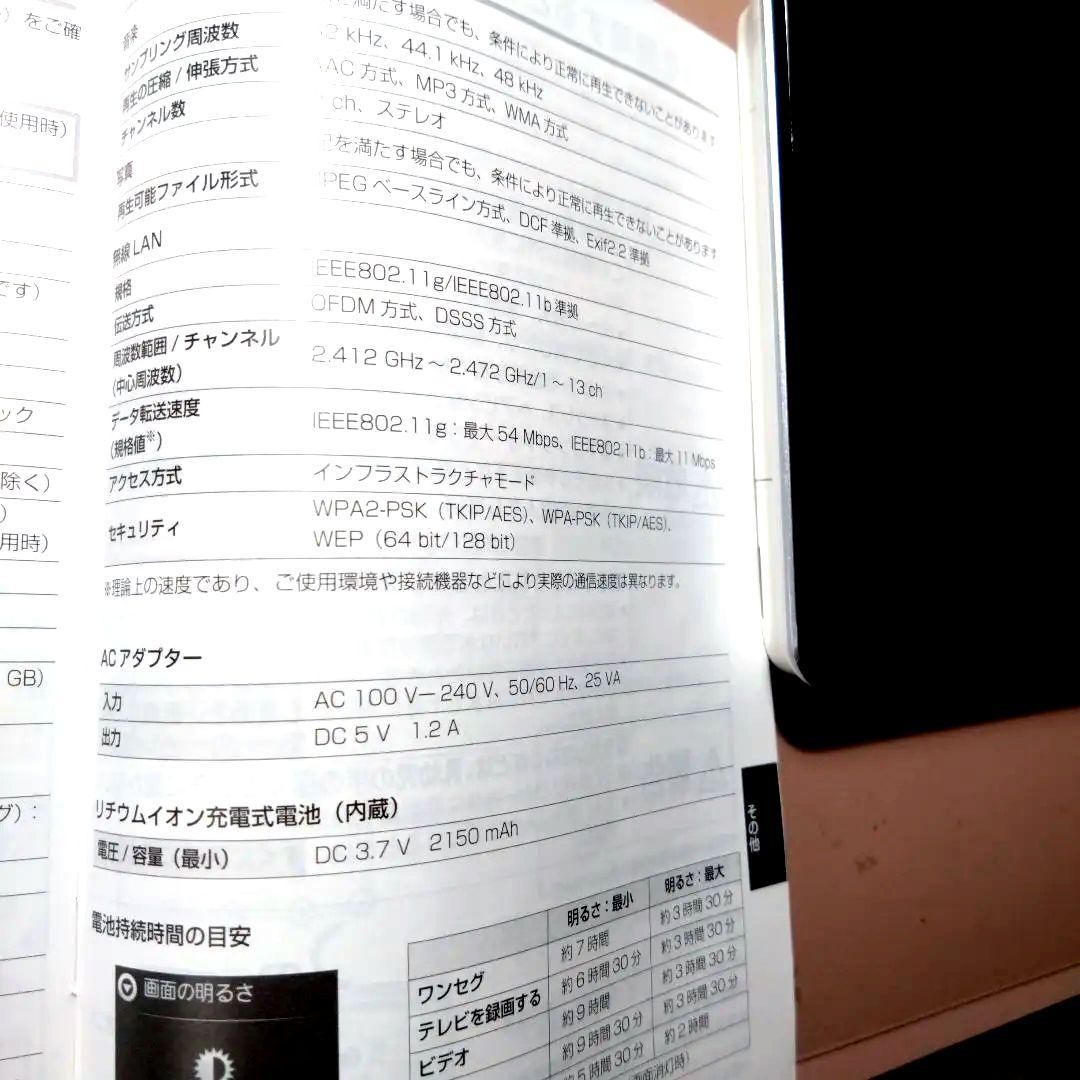 をご確
使用時）
です）
ック
除く）
）
用時）
GB）
グ）：
満たす場合でも、条件により正常に再生できないことがあります
音楽
サンプリング周波数
kHz、44.1 kHz、48 kHz
再生の圧縮 / 伸張方式
AAC 方式、MP3 方式、WMA 方式
チャンネル数
ch、ステレオ
を満たす場合でも、条件により正常に再生できないことがあります
写真
再生可能ファイル形式
JPEG ベースライン方式、DCF 準拠、Exif2.2 準拠
無線 LAN
規格
IEEE802.11g/IEEE802.11b 準拠
伝送方式
OFDM 方式、DSSS 方式
周波数範囲 / チャンネル
（中心周波数）
2.412 GHz ～ 2.472 GHz/1 ～ 13 ch
データ転送速度
（規格値※）
IEEE802.11g：最大 54 Mbps、IEEE802.11b：最大 11 Mbps
アクセス方式
インフラストラクチャモード
セキュリティ
WPA2-PSK（TKIP/AES）、WPA-PSK（TKIP/AES）、
WEP（64 bit/128 bit）
※理論上の速度であり、ご使用環境や接続機器などにより実際の通信速度は異なります。
AC アダプター
入力
AC 100 V－240 V、50/60 Hz、25 VA
出力
DC 5 V 1.2 A
リチウムイオン充電式電池（内蔵）
電圧 / 容量（最小）
DC 3.7 V 2150 mAh
その他
電池持続時間の目安
画面の明るさ
明るさ：最小 明るさ：最大
ワンセグ 約 7 時間 約 3 時間 30 分
テレビを録画する 約 6 時間 30 分 約 3 時間 30 分
ビデオ 約 9 時間 約 3 時間 30 分
約 9 時間 30 分 約 3 時間 30 分
約 5 時間 30 分 約 2 時間
画面消灯時）